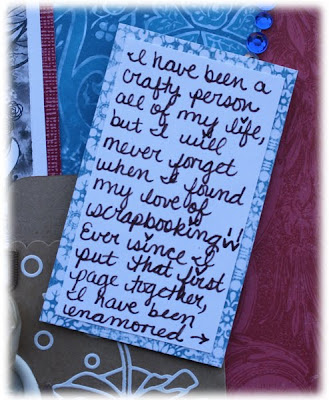 I have been a
crafty person
all of my life,
but I will
never forget
when I found
my love of
scrapbooking!!
Ever since I
put that first
page together,
I have been
enamored →